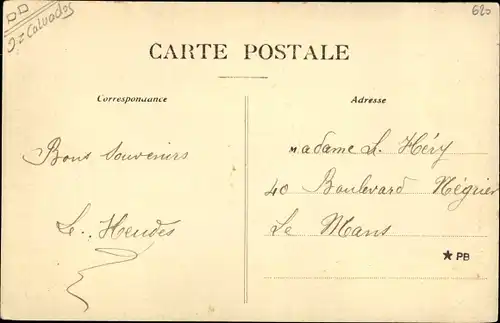 DD
D= Calvados
620
CARTE POSTALE
Correspondance
Adresse
Bons Souvenirs
Madame L. Héry
40 Boulevard Négrier
Le Mans
★ PB